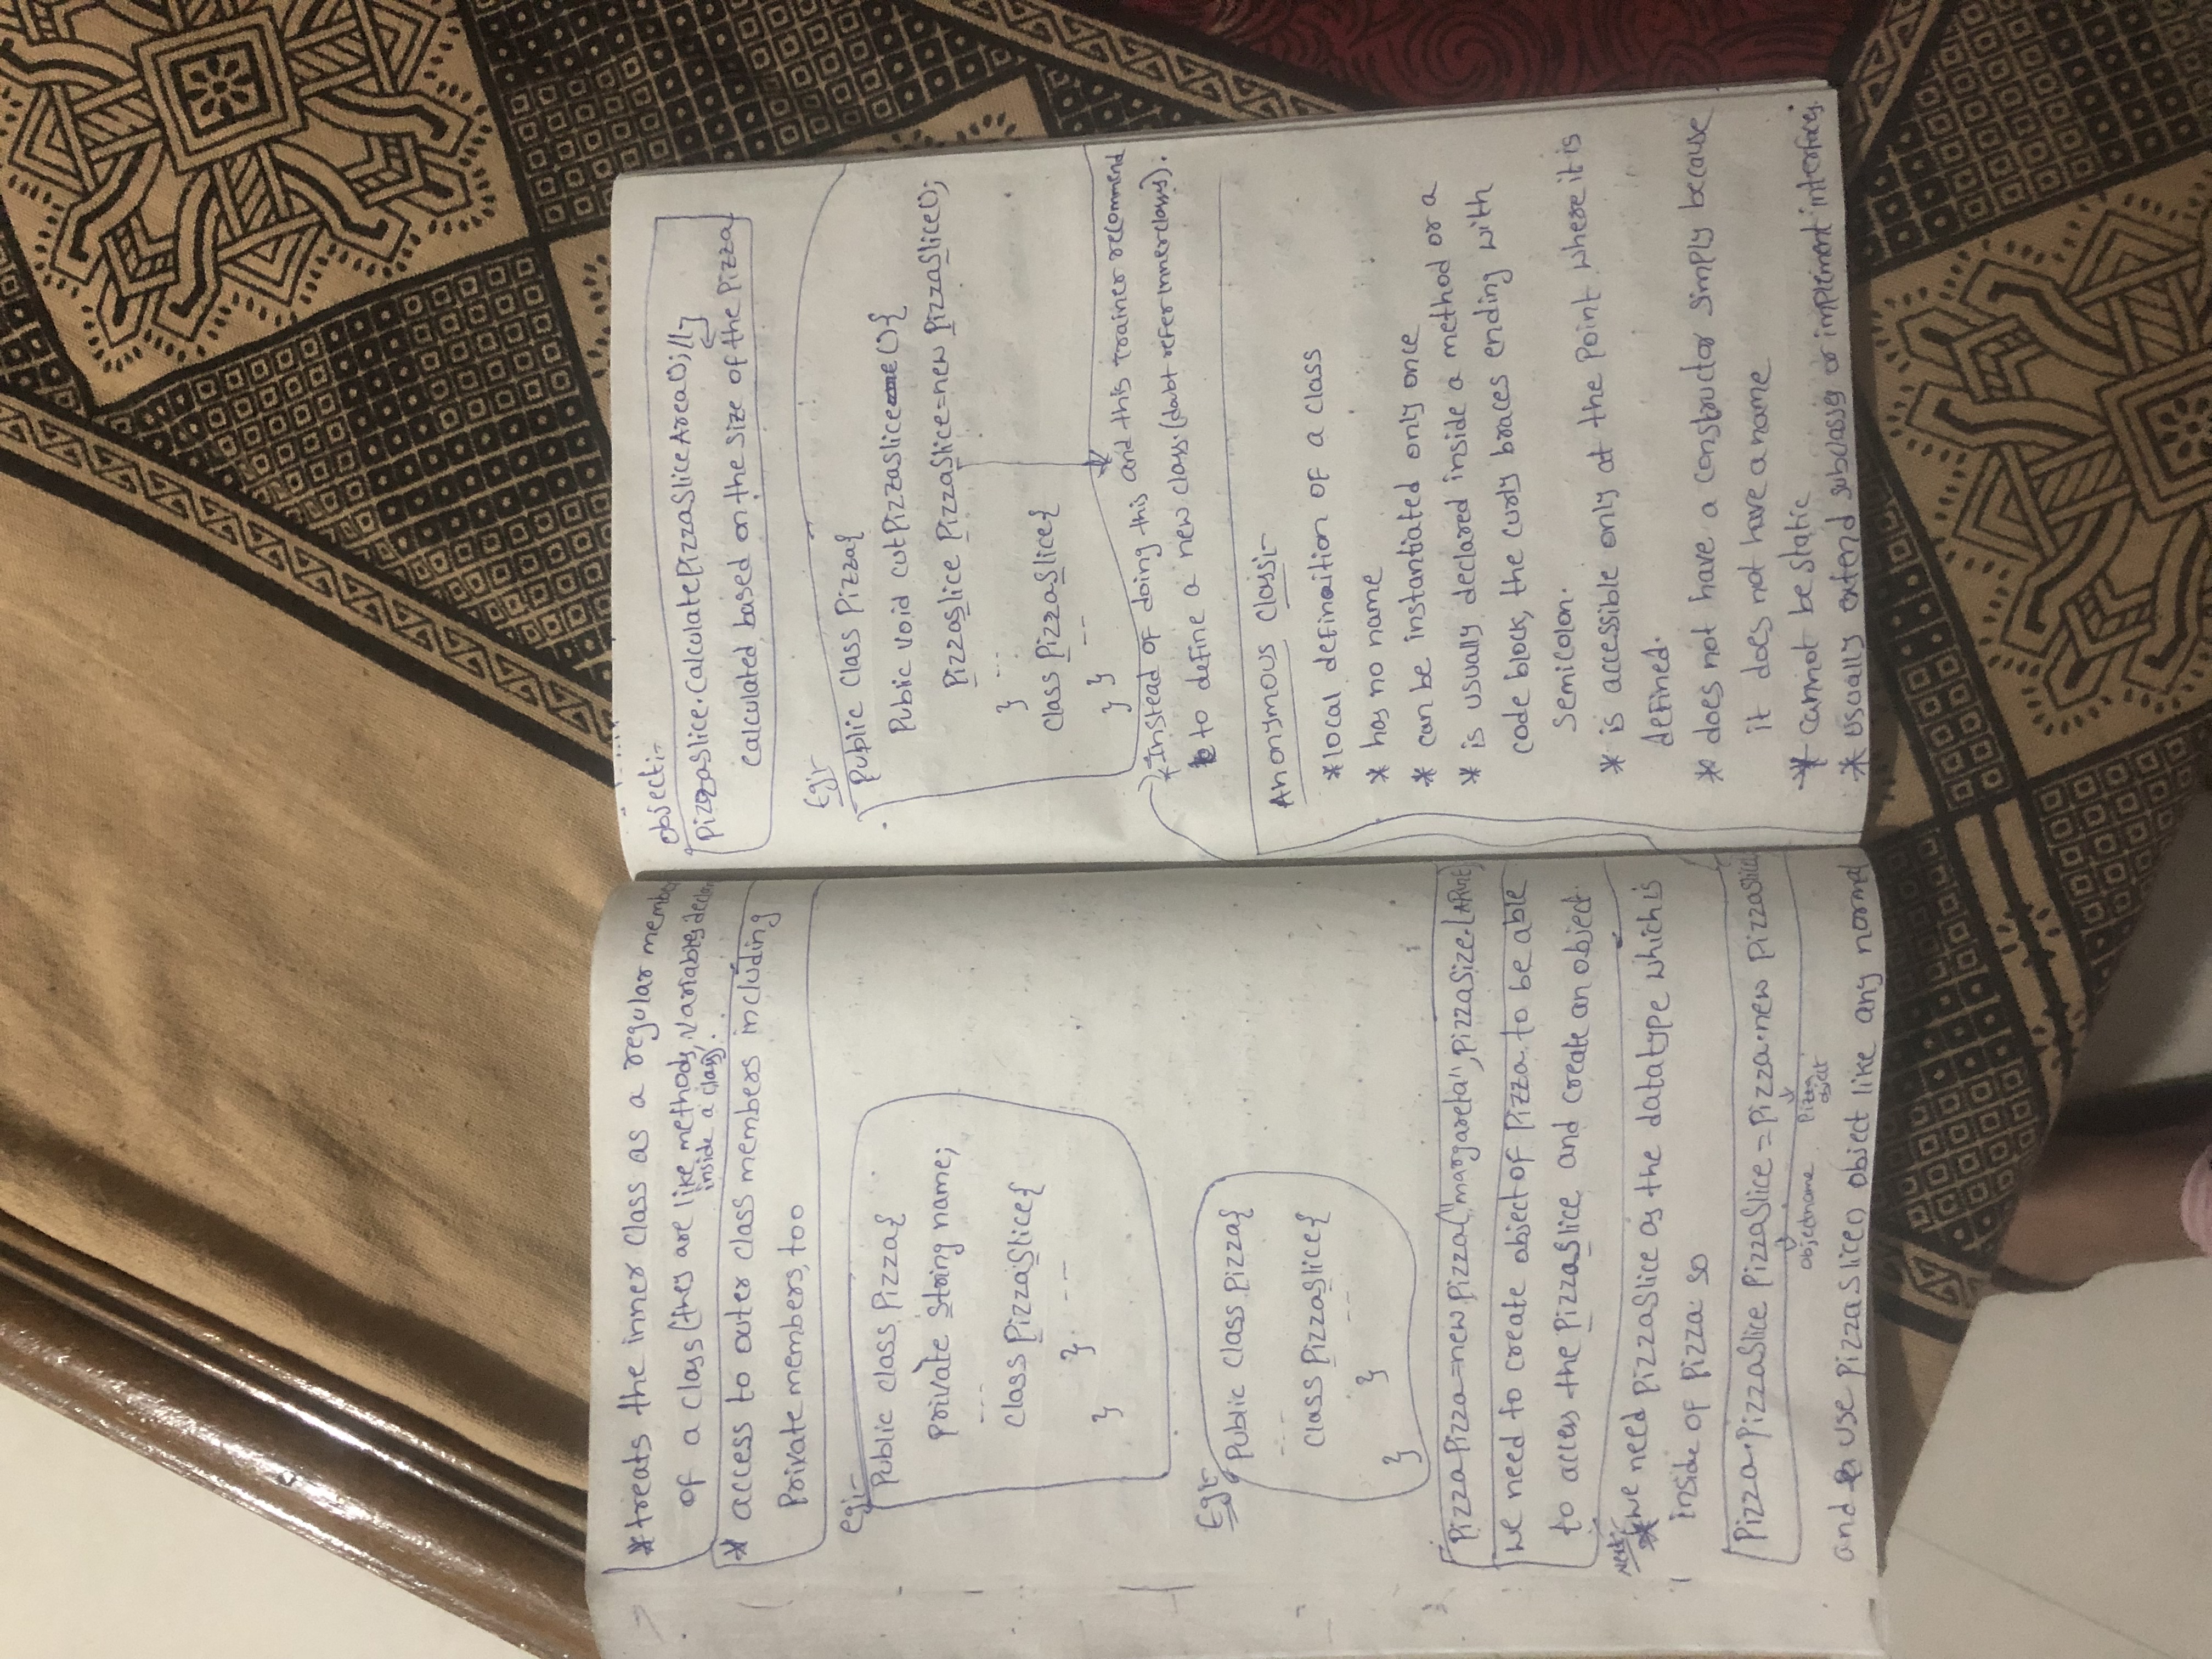 * treats the inner class as a regular membe
of a class (they are like methods, variables declar
inside a class).
* access to outer class members including
Private members, too
eg:-
Public class Pizza{
private String name;
---
class PizzaSlice{
} --
}
Eg:-
Public Class Pizza{
---
class PizzaSlice{
--
}
}
Pizza Pizza=new Pizza("margareta", PizzaSize.
we need to create object of Pizza to be able
to access the PizzaSlice and create an object.
Next:-
* we need PizzaSlice as the datatype which is
inside of Pizza. so
Pizza.PizzaSlice PizzaSlice = Pizza.new PizzaSlice
objectname Pizza
object
and use PizzaSlice() object like any normal
object:-
PizzaSlice.calculatePizzaSliceArea();//
calculated based on the size of the Pizza
Eg:-
Public Class Pizza{
Public void cutPizzaSlice(){
PizzaSlice PizzaSlice=new PizzaSlice();
} ---
class PizzaSlice{
--
} }
* Instead of doing this and this Trainer recommend
to define a new class. (doubt refer innerclasses).
Anonymous Class:-
* local definaition of a class
* has no name
* can be instantiated only once
* is usually declared inside a method or a
code block, the curly braces ending with
semicolon.
* is accessible only at the Point where it is
defined.
* does not have a constructor simply because
it does not have a name
* cannot be static
* usually extend subclasses or implement interfaces.